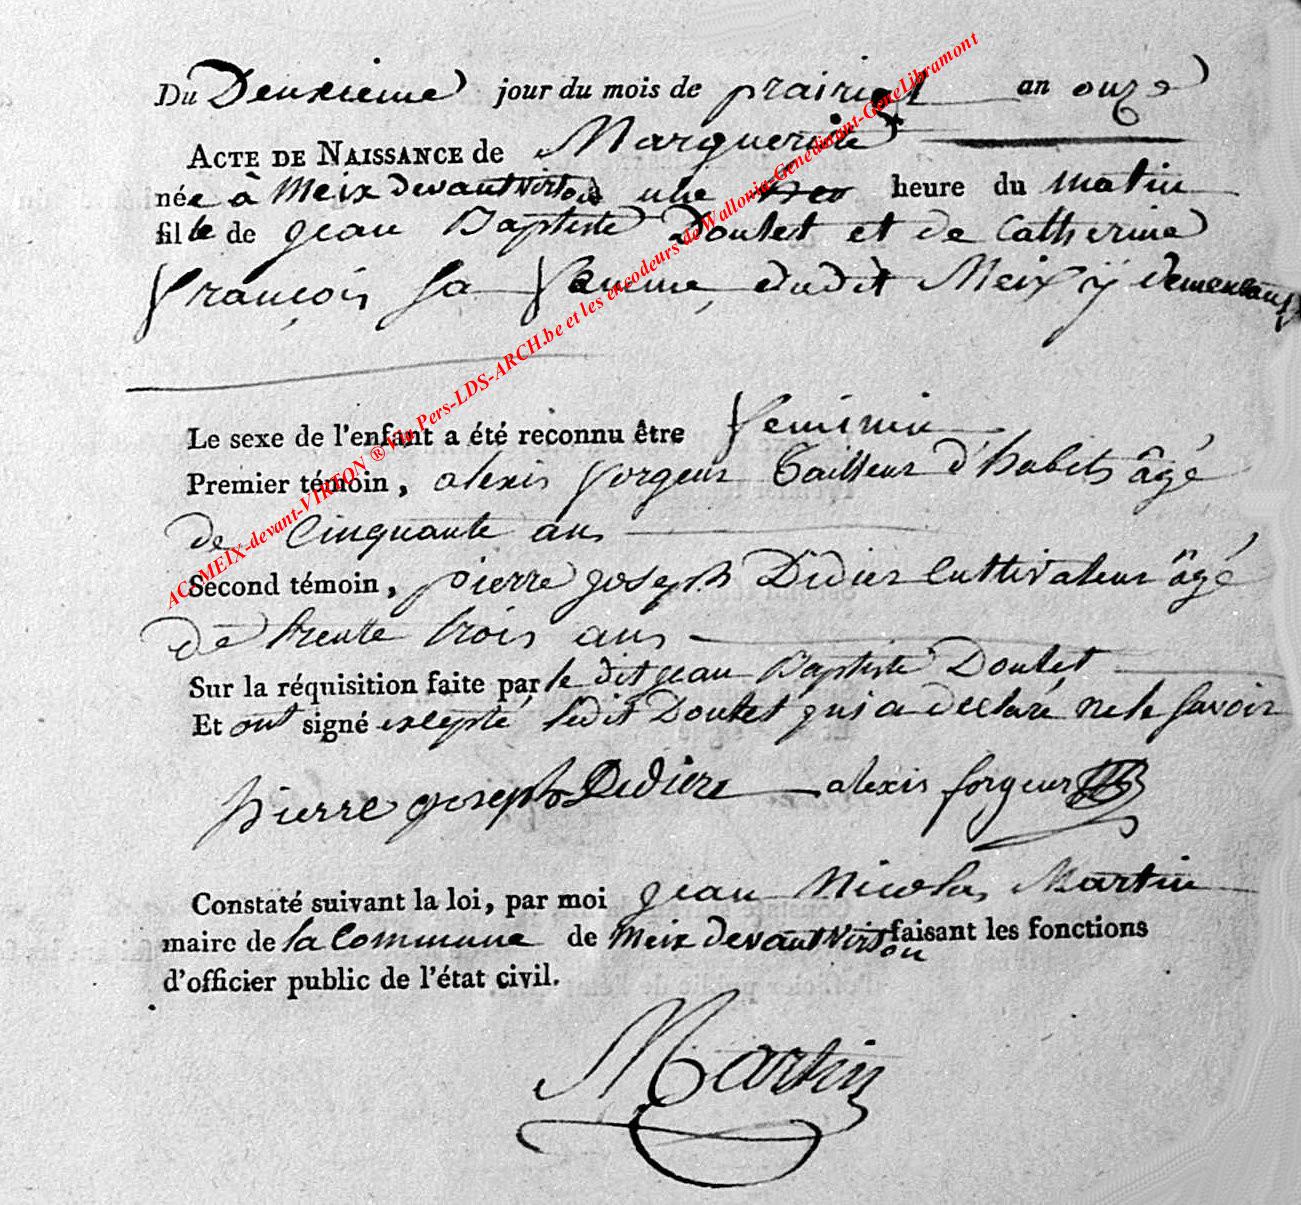 Du Deuxieme jour du mois de prairial an onze
ACTE DE NAISSANCE de Marguerite
née à Meix devant virton une heure du matin
fille de jean Baptiste Doulet et de Catherine
françois sa femme, dudit Meix y demeurant
Le sexe de l'enfant a été reconnu être feminin
Premier témoin, alexis forgeur Tailleur d'habits âgé
de Cinquante ans
Second témoin, pierre joseph Didier Cultivateur âgé
de trente trois ans
Sur la réquisition faite par le dit jean Baptiste Doulet
Et ont signé excepté ledit Doulet qui a declaré ne le savoir
pierre joseph Didiere alexis forgeur
Constaté suivant la loi, par moi jean Nicolas Martin
maire de la Commune de Meix devant Virton faisant les fonctions
d'officier public de l'état civil.
Martin
AC MEIX-devant-VIRTON ® Via Pers-LDS-ARCH.be et les encodeurs de Wallonia-Genedinant-GeneLibramont